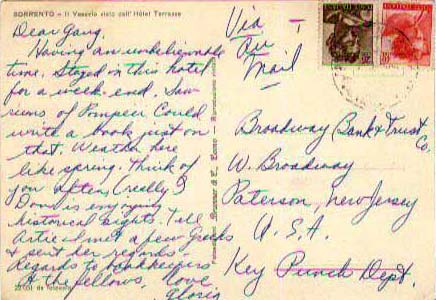 SORRENTO - Il Vesuvio visto dall'Hôtel Terrasse
Dear Gang,
Having an unbelievable
time. Stayed in this hotel
for a week-end. Saw
ruins of Pompeii. Could
write a book just on
that. Weather here
like spring. Think of
you often (really)
Don is enjoying
historical sights. Tell
Artie I met a few Greeks
& sent her regards.
Regards to bookkeepers
& the fellows. Love
Gloria
Via
Air
Mail
Broadway Bank & Trust
Co.
W. Broadway
Paterson, New Jersey
U.S.A.
Key Punch Dept.